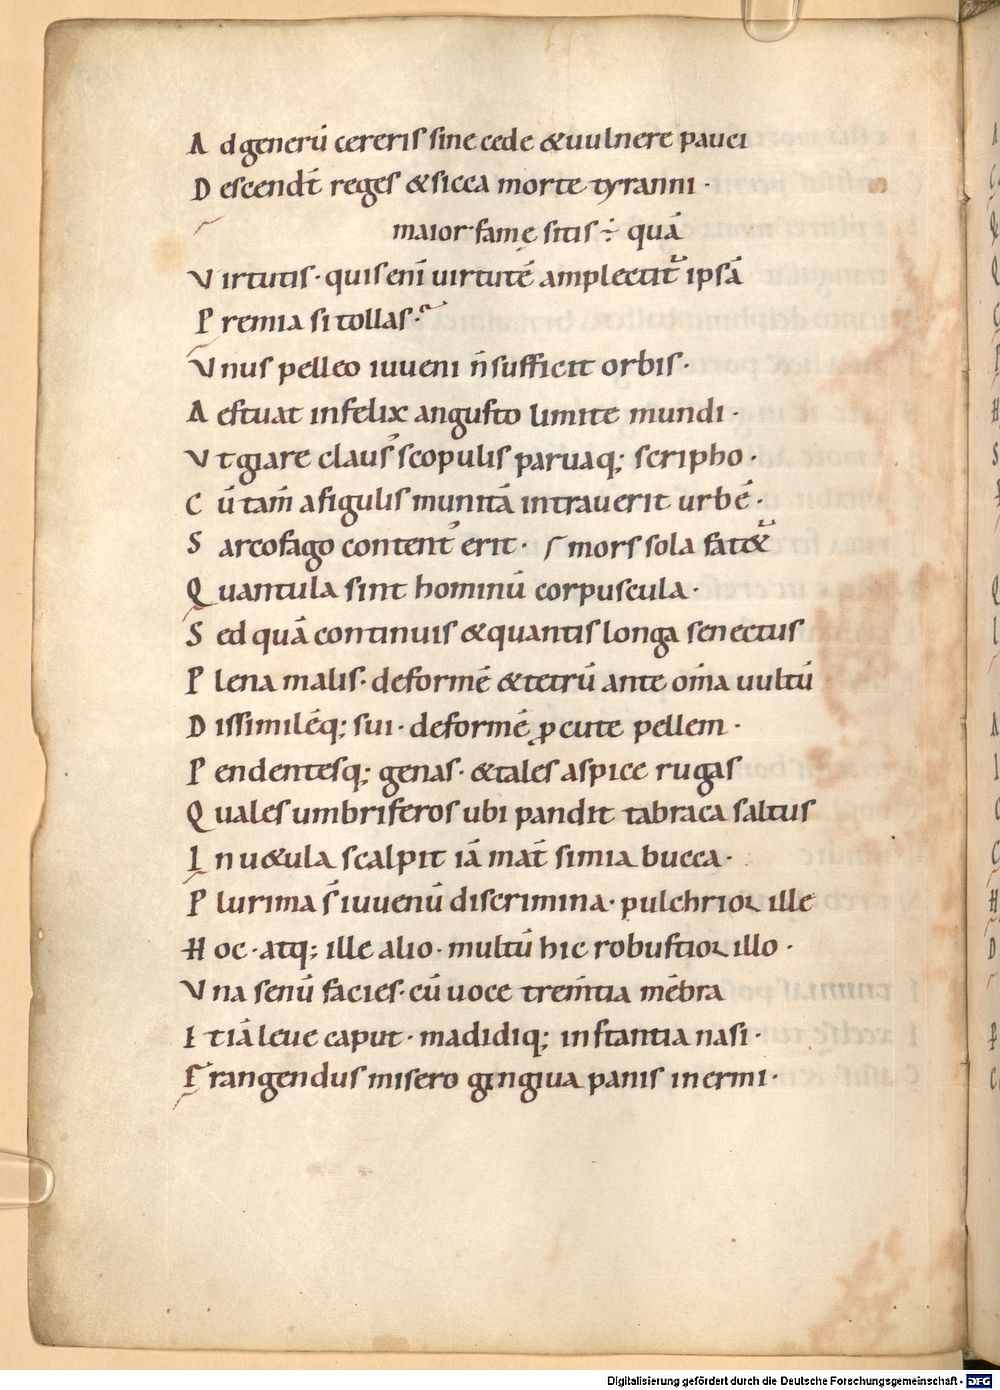 A d generū cereris sine cede &uulnere pauci
D escend̄t reges &sicca morte tyranni ·
maior fame sitis ÷ quā
V irtutis · quis enī uirtutē amplectit᷑ ipsā
P remia si tollas ·
V nus pelleo iuueni n̄ sufficit orbis ·
A estuat infelix angusto limite mundi ·
V t giare claus᾿ scopulis paruaq; scripho ·
C ū tam̄ a figulis munitā intrauerit urbē ·
S arcofago content᾿ erit · mors sola fat&᷑
Q uantula sint hominū corpuscula ·
S ed quā continuis &quantis longa senectus
P lena malis · deformē &tetrū ante om̄a uultū
D issimilēq; sui · deformē ꝓ cute pellem ·
P endentesq; genas · &tales aspice rugas
Q uales umbriferos ubi pandit tabraca saltus
I n u&ula scalpit iā mat̄ simia bucca ·
P lurima s̄ iuuenū discrimina · pulchrior ille
H oc · atq; ille alio · multū hic robustior illo ·
V na senū facies · cū uoce trem̄tia mēbra
I t iā leue caput · madidiq; infantia nasi ·
F rangendus misero gingiua panis inermi ·
Digitalisierung gefördert durch die Deutsche Forschungsgemeinschaft - DFG